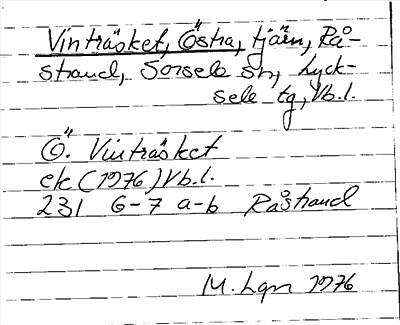 Vinträsket, Östra, tjärn, Rå-
strand, Sorsele sn, Lyck-
sele tg, Vb.l.
Ö. Vinträsket
ek (1976) Vb.l.
231 6-7 a-b Råstrand
M. Lgn 1976